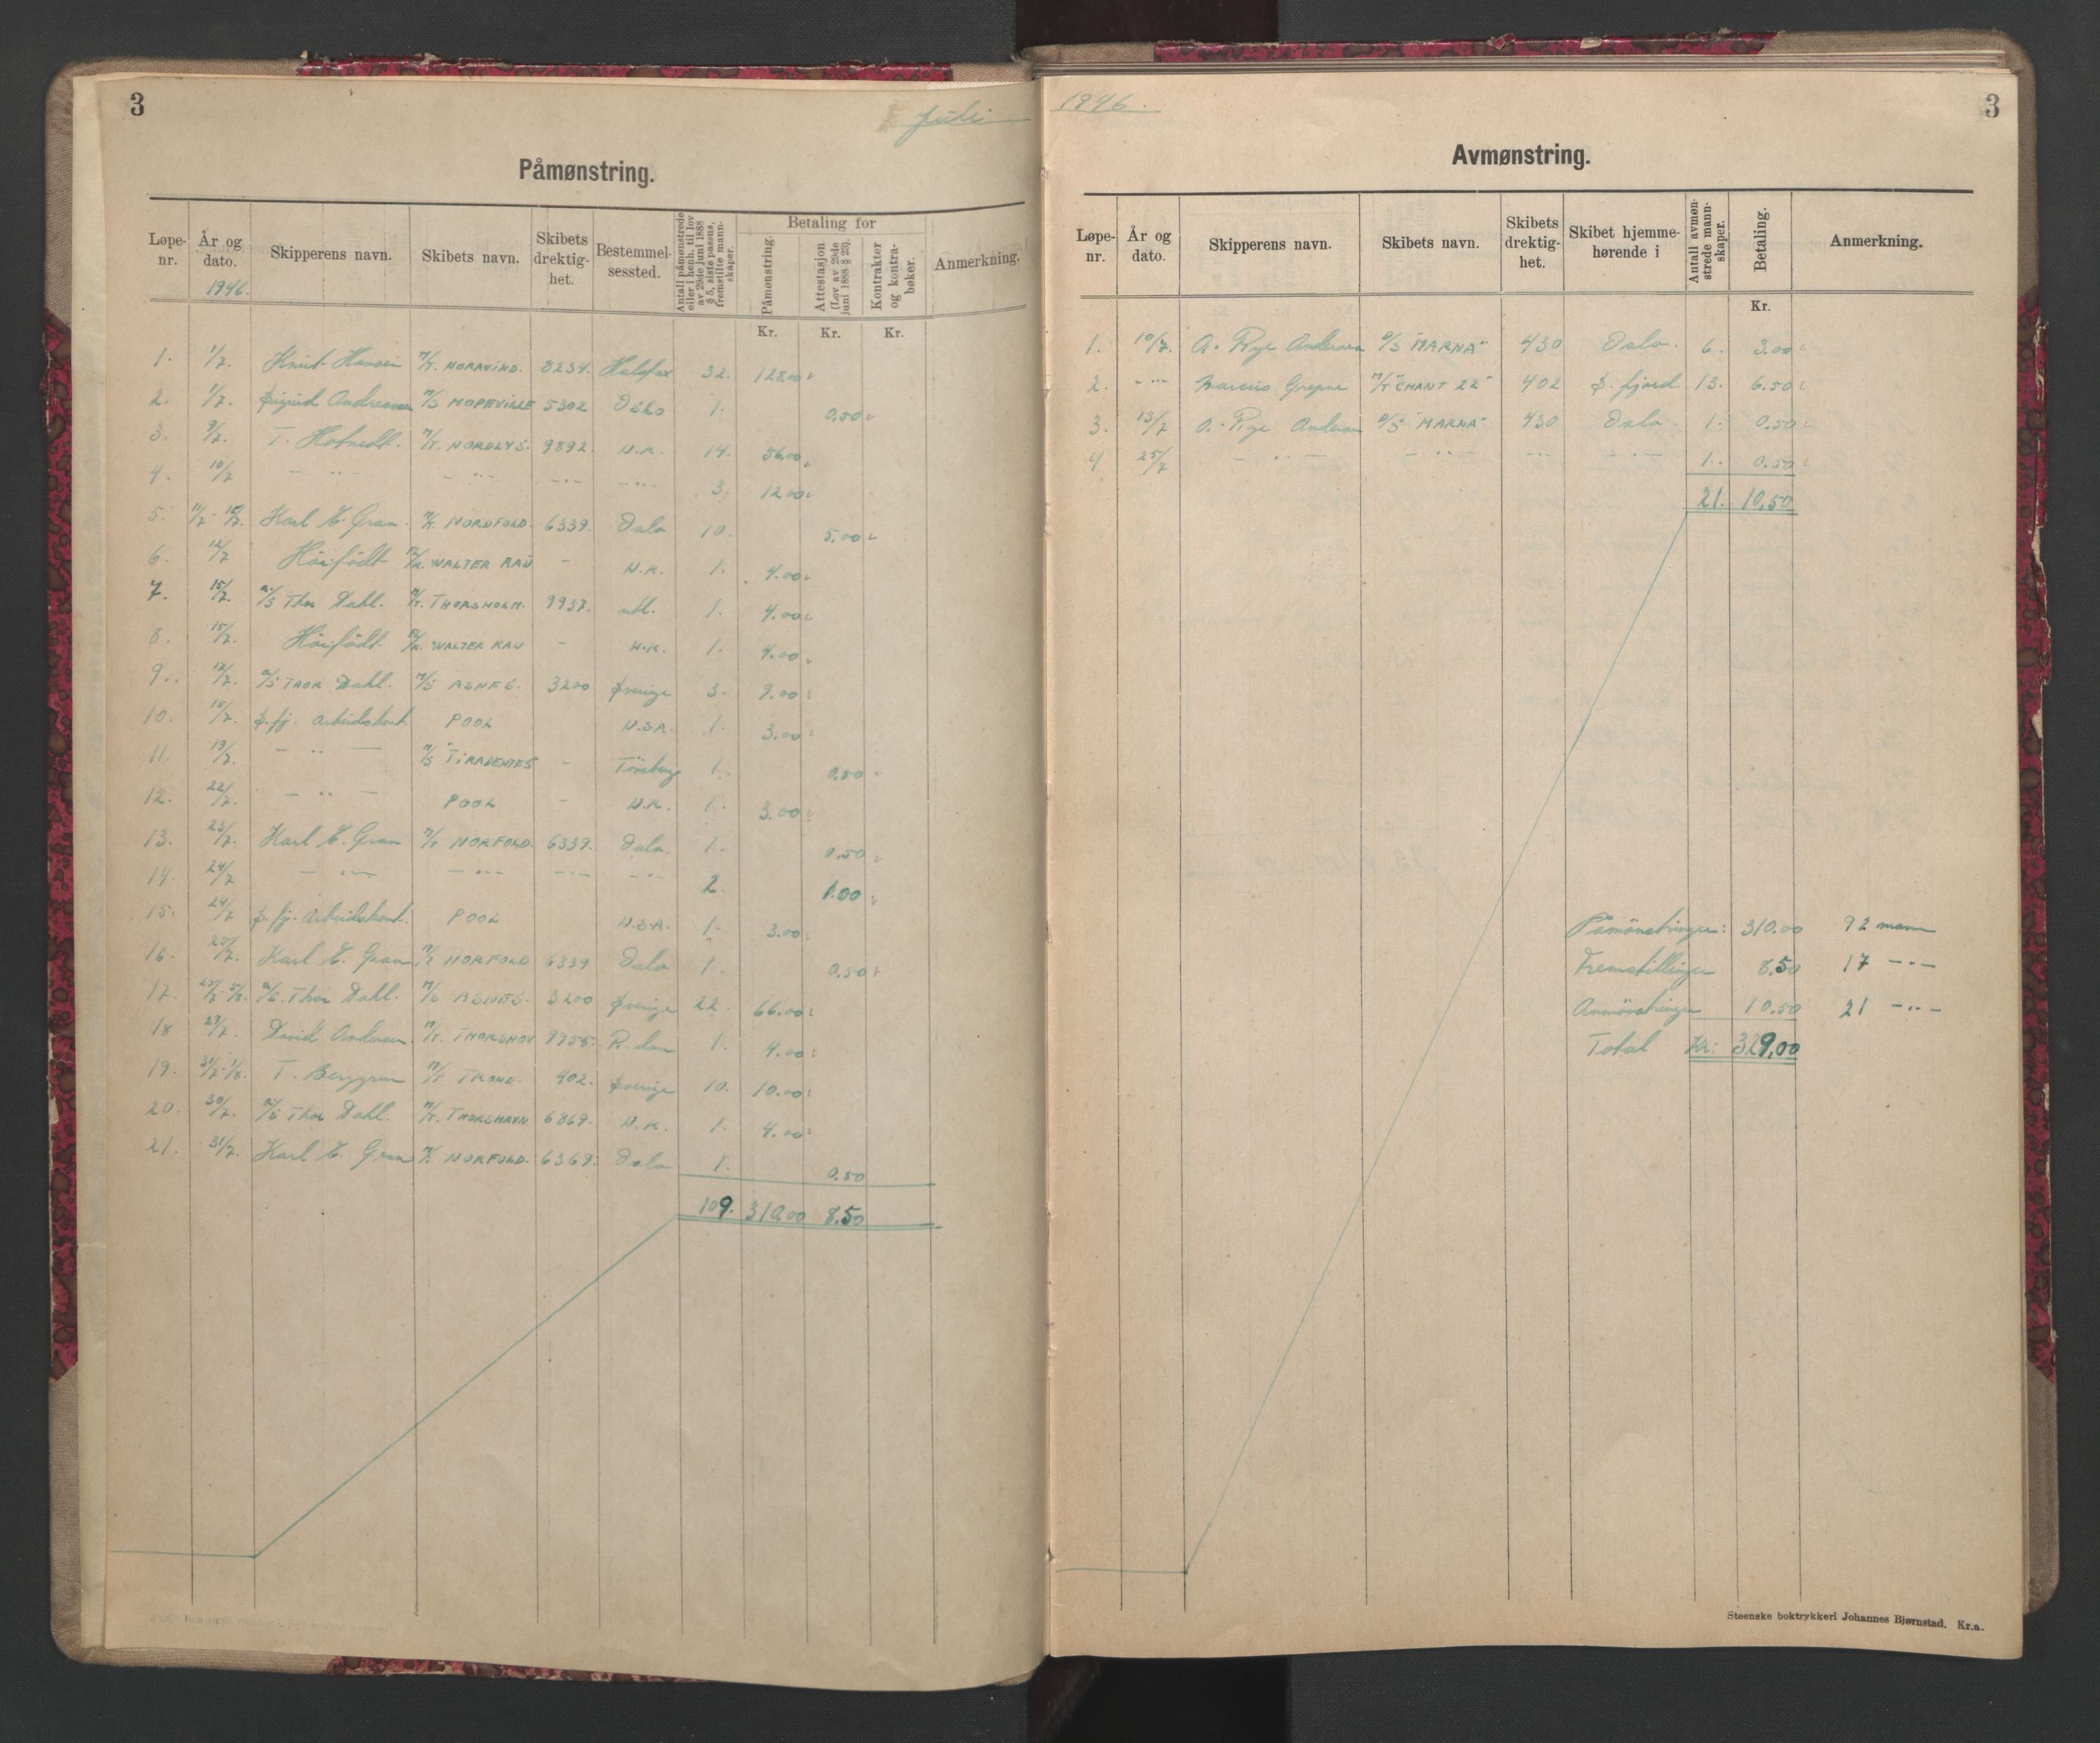 3
Juli
Påmønstring.
Løpe-nr. | År og dato. | Skipperens navn. | Skibets navn. | Skibets drektig-het. | Bestemmel-sessted. | Antall påmønstrede eller i henh. til lov av 29de juni 1888 § 5, siste passus, fremstilte mann-skaper. | Betaling for | Påmønstring. | Attestasjon (Lov av 29de juni 1888 § 23). | Kontrakter og kontra-bøker. | Anmerkning.
1946.
Kr. Kr. Kr.
1. 1/7. Knut Hansen M/T. NORDVIND. 8234. Halifax 32. 128.00
2. 1/7. Sigurd Andreassen M/S HOPEVILLE 5302 Oslo 1. 0.50
3. 9/7. T. M/T. NORDLYS. 9892. U.K. 14. 56.00
4. 10/7 — " — — " — — " — — " — 3. 12.00
5. 11/7 - 15/7. Karl E. Gran. M/T. NORDFOLD. 6339. Oslo 10. 5.00
6. 12/7 Høifødt WALTER RAU - U.K. 1. 4.00
7. 15/7. A/S Thor Dahl. M/T. THORSHOLM. 9937. utl. 1. 4.00
8. 15/7. Høifødt WALTER RAU - U.K. 1. 4.00
9. 17/7. A/S THOR Dahl. M/S ASNES. 3200 Sverige 3. 9.00
10. 18/7. S.fj. arbeidskont. POOL U.S.A. 1. 3.00
11. 19/7. — " — M/S TIRADENTES - Tönsberg 1. 0.50
12. 22/7. — " — POOL - U.K. 1. 3.00
13. 23/7. Karl E. Gran M/T NORFOLD. 6339. Oslo. 1. 0.50
14. 24/7 — " — — " — — " — — " — 2. 1.00
15. 24/7 S. fj. Arbeidskont. POOL U.S.A. 1. 3.00
16. 25/7. Karl E. Gran M/T NORFOLD 6339 Oslo 1. 0.50
17. A/S. Thor Dahl. M/S ASNES. 3200 Sverige 22. 66.00
18 29/7. David Andersen. M/T. THORSHOV 9955. R. dam 1. 4.00
19. 31/7-1/8. T. Berggren M/T TROND. 402. Sverige 10. 10.00
20. 30/7. A/S Thor Dahl. M/T. THORSHAVN 6869. U.K. 1. 4.00
21. 31/7. Karl E. Gran M/T. NORFOLD. 6369. Oslo 1. 0.50
109. 310.00 8.50
1946.
3
Avmønstring.
Løpe-nr. | År og dato. | Skipperens navn. | Skibets navn. | Skibets drektig-het. | Skibet hjemme-hørende i | Antall avmøn-strede mann-skaper. | Betaling. | Anmerkning.
Kr.
1. 10/7. A. Rye Andersen D/S "MARNA" 430 Oslo. 6. 3.00
2. - " - Marcus Grepne M/T "CHANT 22" 402 S. fjord 13. 6.50
3. 13/7 A. Rye Andersen D/S "MARNA" 430 Oslo. 1. 0.50
4 25/7 — " — — " — - " - — " — 1. 0.50
21. 10,50
Påmönstringer: 310.00 92 mann
Fremstillinger 8.50 17 — " —
Avmönstringer 10.50 21 — " —
Total Kr: 329,00
Steenske boktrykkeri Johannes Bjørnstad. Kr.a.